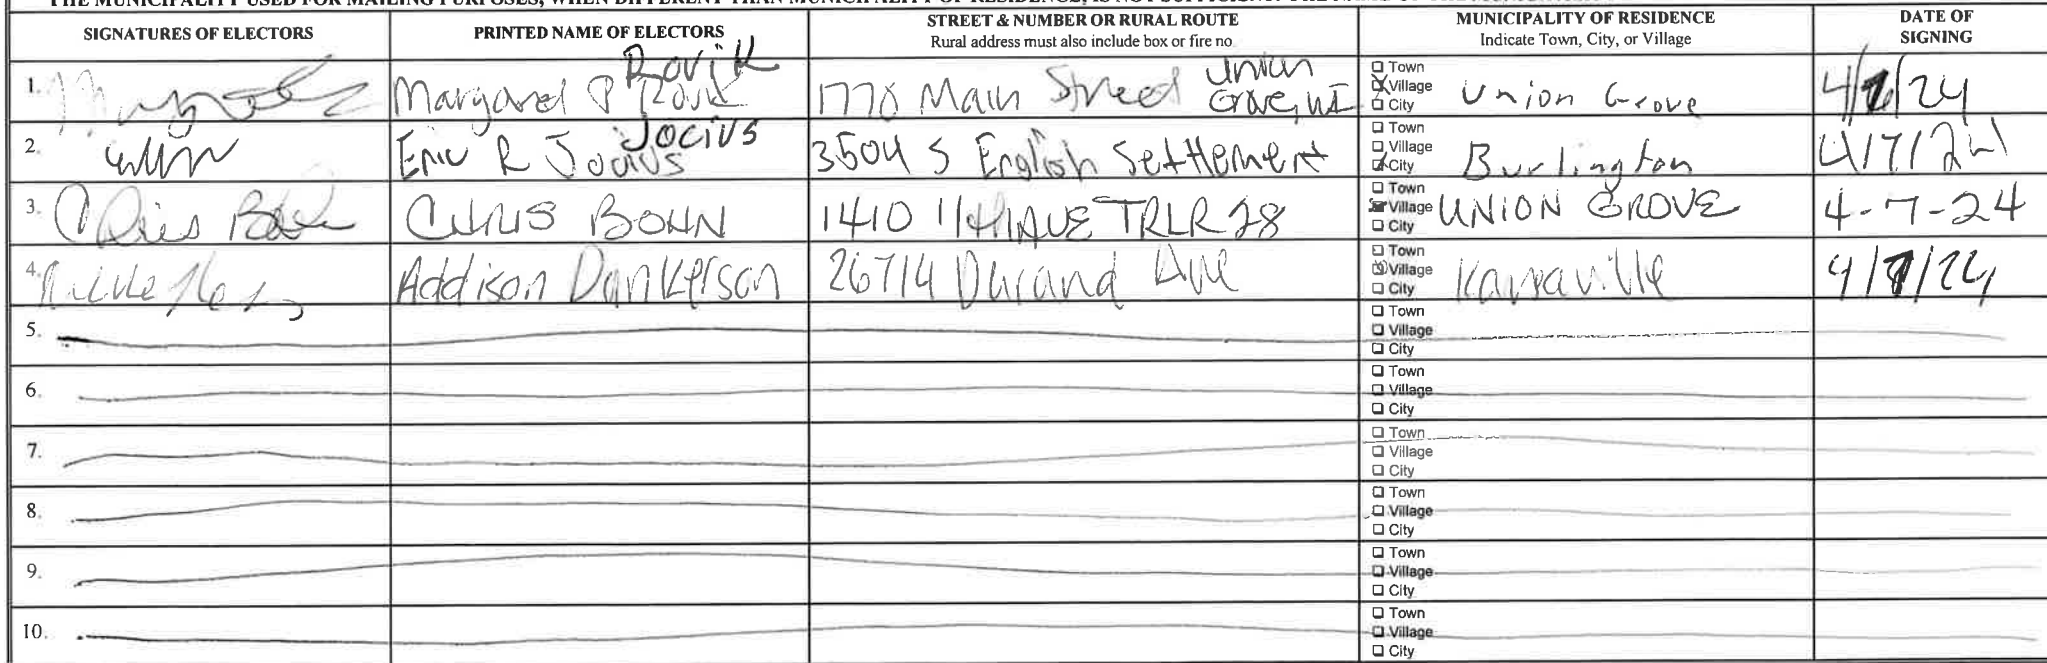 SIGNATURES OF ELECTORS
PRINTED NAME OF ELECTORS
STREET & NUMBER OR RURAL ROUTE
Rural address must also include box or fire no.
MUNICIPALITY OF RESIDENCE
Indicate Town, City, or Village
DATE OF
SIGNING
1.
Rovik
Margaret P Rovik
1778 Main Street Union
Grove, WI
Town
Village
City
Union Grove
4/7/24
2.
Jocius
Eric R Jocius
3504 S English Settlement
Town
Village
City
Burlington
4/7/24
3.
Chris
CHRIS BOHN
1410 114 AVE TRLR 28
Town
Village
City
UNION GROVE
4-7-24
4.
Addison Dankerson
26714 Durand Ave
Town
Village
City
Kansaville
4/7/24
5.
Town
Village
City
6.
Town
Village
City
7.
Town
Village
City
8.
Town
Village
City
9.
Town
Village
City
10.
Town
Village
City